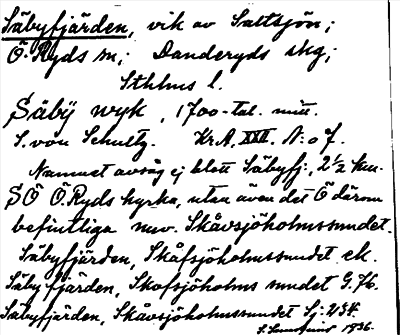 Säbyfjärden, vik av Saltsjön;
Ö. Ryds sn; Danderyds skg;
Sthlms l.
Säbÿ wyk, 1700-tal. mitt.
S. von Schultz. Kr.A, XXII. N:o 7.
Namnet avsåg ej blott Säbyfj., 2½ km.
SÖ Ö. Ryds kyrka, utan även det Ö därom
befintliga nuv. Skåvsjöholmssundet.
Säbyfjärden, Skåfsjöholmssundet ek.
Säby fjärden, Skofsjöholms sundet G.K.
Säbyfjärden, Skåvsjöholmssundet Sj. 234.
1936.